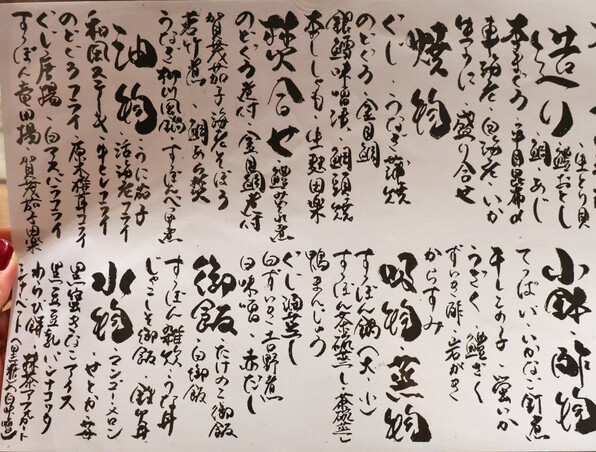 造り
・生とり貝
・鱧おとし
・鯛・あじ
本まぐろ・平目昆布〆
車海老・白海老・いか
生うに・盛り合せ
焼物
ぐじ・うなぎ蒲焼
のどぐろ・金目鯛
銀鱈味噌漬・鯛頭焼
本ししゃも・生麩田楽
焚合せ
・鱧
のどぐろ煮付・金目鯛煮付
賀茂茄子海老そぼろ
若竹煮・鯛あら焚
うなぎ柳川風鍋・すっぽんべた煮
油物
・うに
・活海老フライ
和風ステーキ・牛ヒレフライ
のどぐろフライ・原木椎茸フライ
ぐじ唐揚・白アスパラフライ
すっぽん竜田揚・賀茂茄子田楽
小鉢・酢物
てっぱい・いかなご釘煮
干しこの子・蛍いか
うざく・鱧ざく
ずいき酢・岩がき
からすみ
吸物・蒸物
すっぽん鍋(大・小)
すっぽん茶碗蒸し・茶碗蒸し
鴨まんじゅう
ぐじ酒蒸し
白ずいき吉野煮
白味噌・赤だし
御飯
・たけのこ御飯
・白御飯
すっぽん雑炊・うな丼
じゃこ御飯・鉄火丼
水物
・マンゴー・メロン
・せとか・苺
黒蜜きなこアイス
黒豆豆乳パンナコッタ
わらび餅・抹茶アフォガード
シャーベット